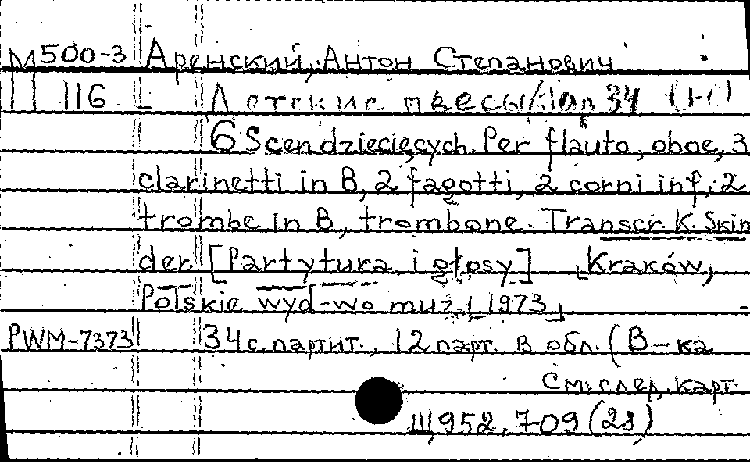 М 500-3 Аренский, Антон Степанович
116 Детские пьесы
6 Scen dziecięcych. Per flauto, oboe, 3
clarinetti in B, 2 fagotti, 2 corni in f, 2
trombe in B, trombone. Transcr. K. Skin
der [Partytura i głosy] Kraków,
Polskie wyd-wo muz., 1973
PWM-7373 34 с. партит., 12 парт. в обл. (В-ка
См. след. карт.
952, 709 (28)